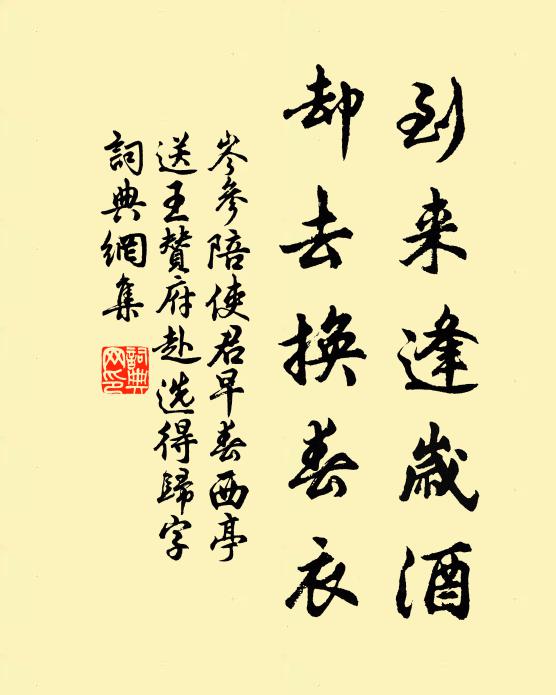 到来逢歲酒
却去換春衣
岑參陪使君早春西亭
送王贊府赴选得歸字
詞典網集
詞典网印